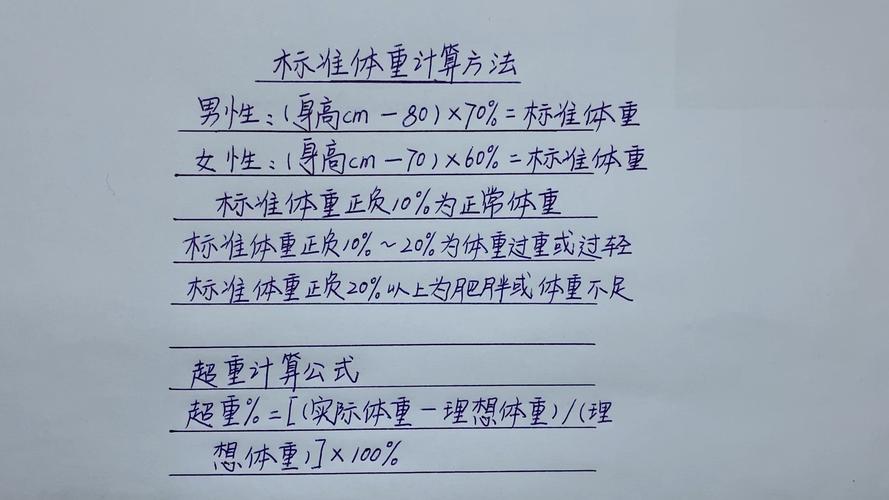 标准体重计算方法
男性：(身高cm-80)×70%=标准体重
女性：(身高cm-70)×60%=标准体重
标准体重正负10%为正常体重
标准体重正负10%~20%为体重过重或过轻
标准体重正负20%以上为肥胖或体重不足
超重计算公式
超重%=[(实际体重-理想体重)/(理
想体重)]×100%